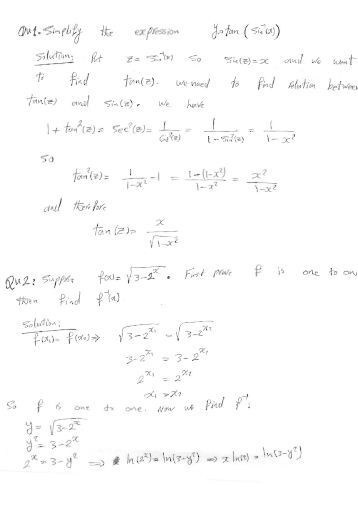 Qu1. Simplify the expression y=tan(sin⁻¹(x))
Solution: Put z = sin⁻¹(x) so sin(z)=x and we want
to find tan(z). we need to find relation between
tan(z) and sin(z). we have
1 + tan²(z) = Sec²(z) = 1/cos²(z) = 1/(1-sin²(z)) = 1/(1-x²)
so
tan²(z) = 1/(1-x²) - 1 = (1-(1-x²))/(1-x²) = x²/(1-x²)
and therefore
tan(z) = x/√(1-x²)
Qu2: Suppose f(x)= √(3-2ˣ). First prove f is one to one
then find f⁻¹(x)
Solution:
f(x₁)= f(x₂) ⇒ √(3-2^x₁) = √(3-2^x₂)
3-2^x₁ = 3-2^x₂
2^x₁ = 2^x₂
x₁ = x₂
So f is one to one. Now we find f⁻¹.
y = √(3-2ˣ)
y² = 3-2ˣ
2ˣ = 3-y² ⇒ ln(2ˣ) = ln(3-y²) ⇒ x ln(2) = ln(3-y²)